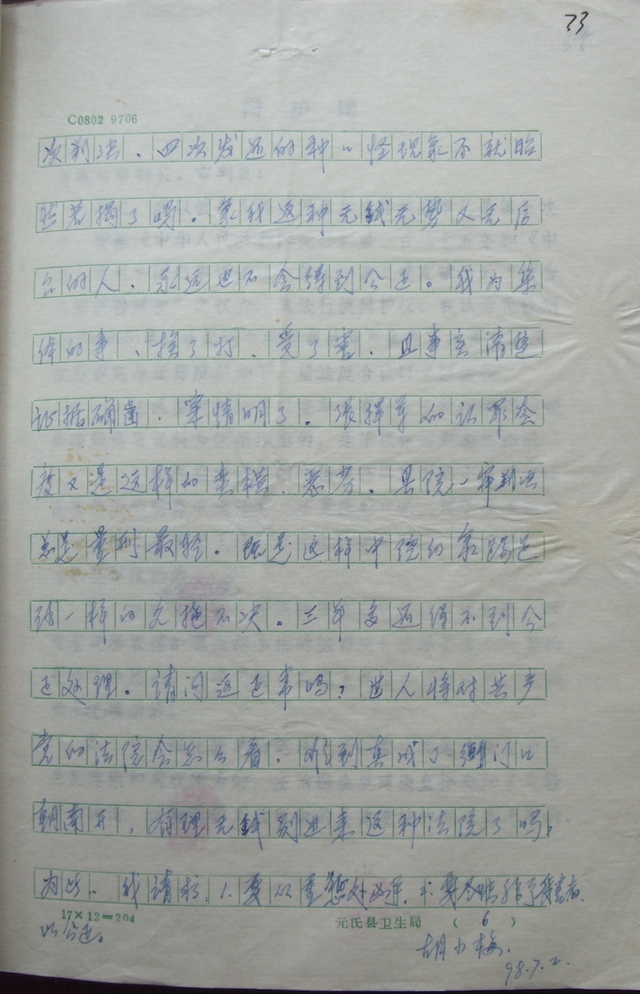 33
C0802 9706
次判决、四次发还的种种怪现象不就昭
然若揭了吗。象我这种无钱无势又无后
台的人、永远也不会得到公正。我为集
体的事、挨了打、受了害、且事实清楚
证据确凿、案情明了。张 的认罪态
度又是这样的 、恶劣。县院一审判决
总是量刑最轻。 是这样中院的象踢足
球一样的久拖不决。三年多还得不到公
正处理。请问这正常吗？世人将对共产
党的法院会怎么看、难到真成了 门口
朝南开，有理无钱别进来这种法院了吗！
为此、我请求、1.要从重 处 、2.要 给予 害者
以公正。
17×12=204
元氏县卫生局 (6)
胡小梅.
98.7.2.